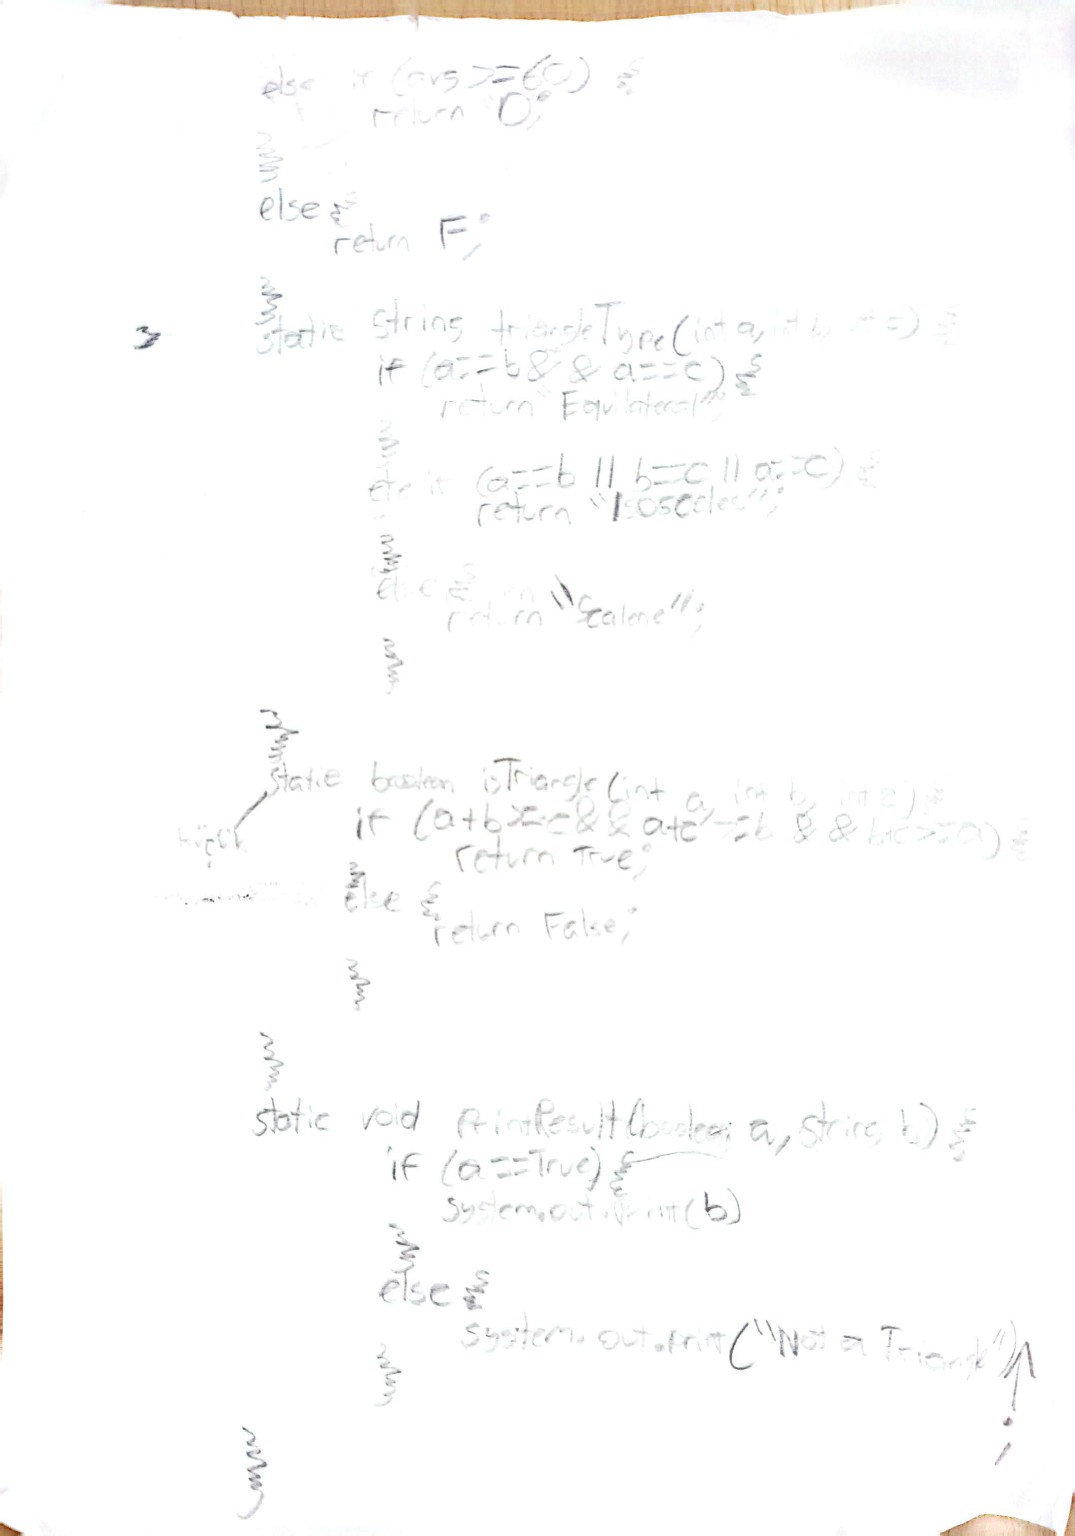 else if (avg >= 60) {
return "D;
}
else {
return F;
}
3 static string triangleType(int a, int b, int c) {
if (a==b && a==c) {
return "Equilateral";
}
else if (a==b || b==c || a==c) {
return "Isosceles";
}
else {
return "Scalene";
}
}
static boolean isTriangle(int a, int b, int c) {
if (a+b>=c && a+c>=b && b+c>=a) {
küçük
return True;
}
else {
return False;
}
}
static void PrintResult(boolean a, string b) {
if (a==True) {
system.out.print(b)
}
else {
system.out.print("Not a Triangle")
}
;
}